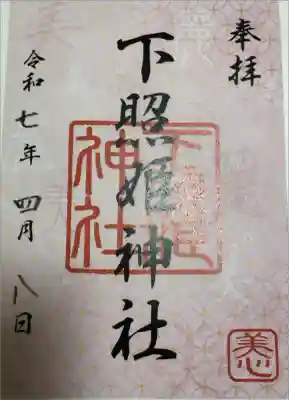 奉拝
下照姫神社
下照姫
神社
令和七年四月八日
美心